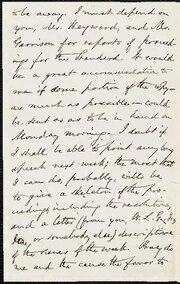 be away. I must depend on
you, Mr. Heywood, and Mr.
Garrison for reports of proceed-
ings for the Standard. It would
be a great accommodation to
me if some portion of the copy—
as much as possible— could
be sent so as to be in hand on
Monday morning. I doubt if
I shall be able to print any long
speech next week; the most that
I can do, probably, will be
to give a skeleton of the pro-
ceedings, including the resolutions,
and a letter (from you, W. L. G.,
or somebody else) descriptive
of the scenes of the week. Pray do
me and the cause the favor to